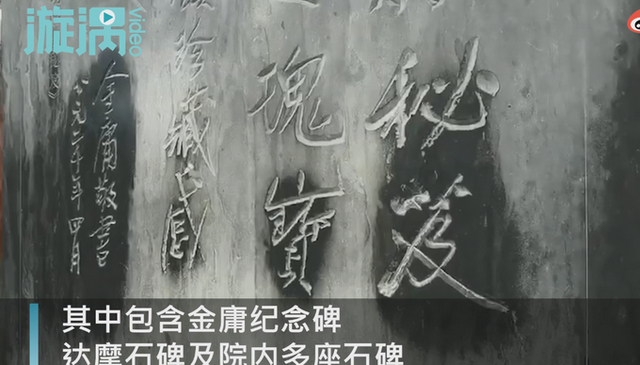 漩涡video
秘笈
瑰寶
藏
金庸敬書
公元二千年四月
其中包含金庸纪念碑
达摩石碑及院内多座石碑